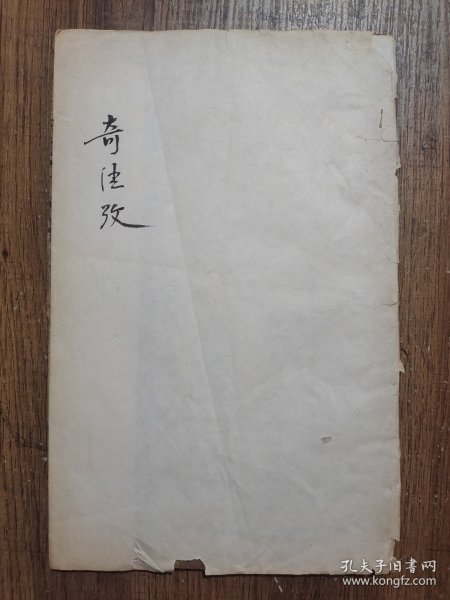 奇佳攷
孔夫子旧书网
www.kongfz.com